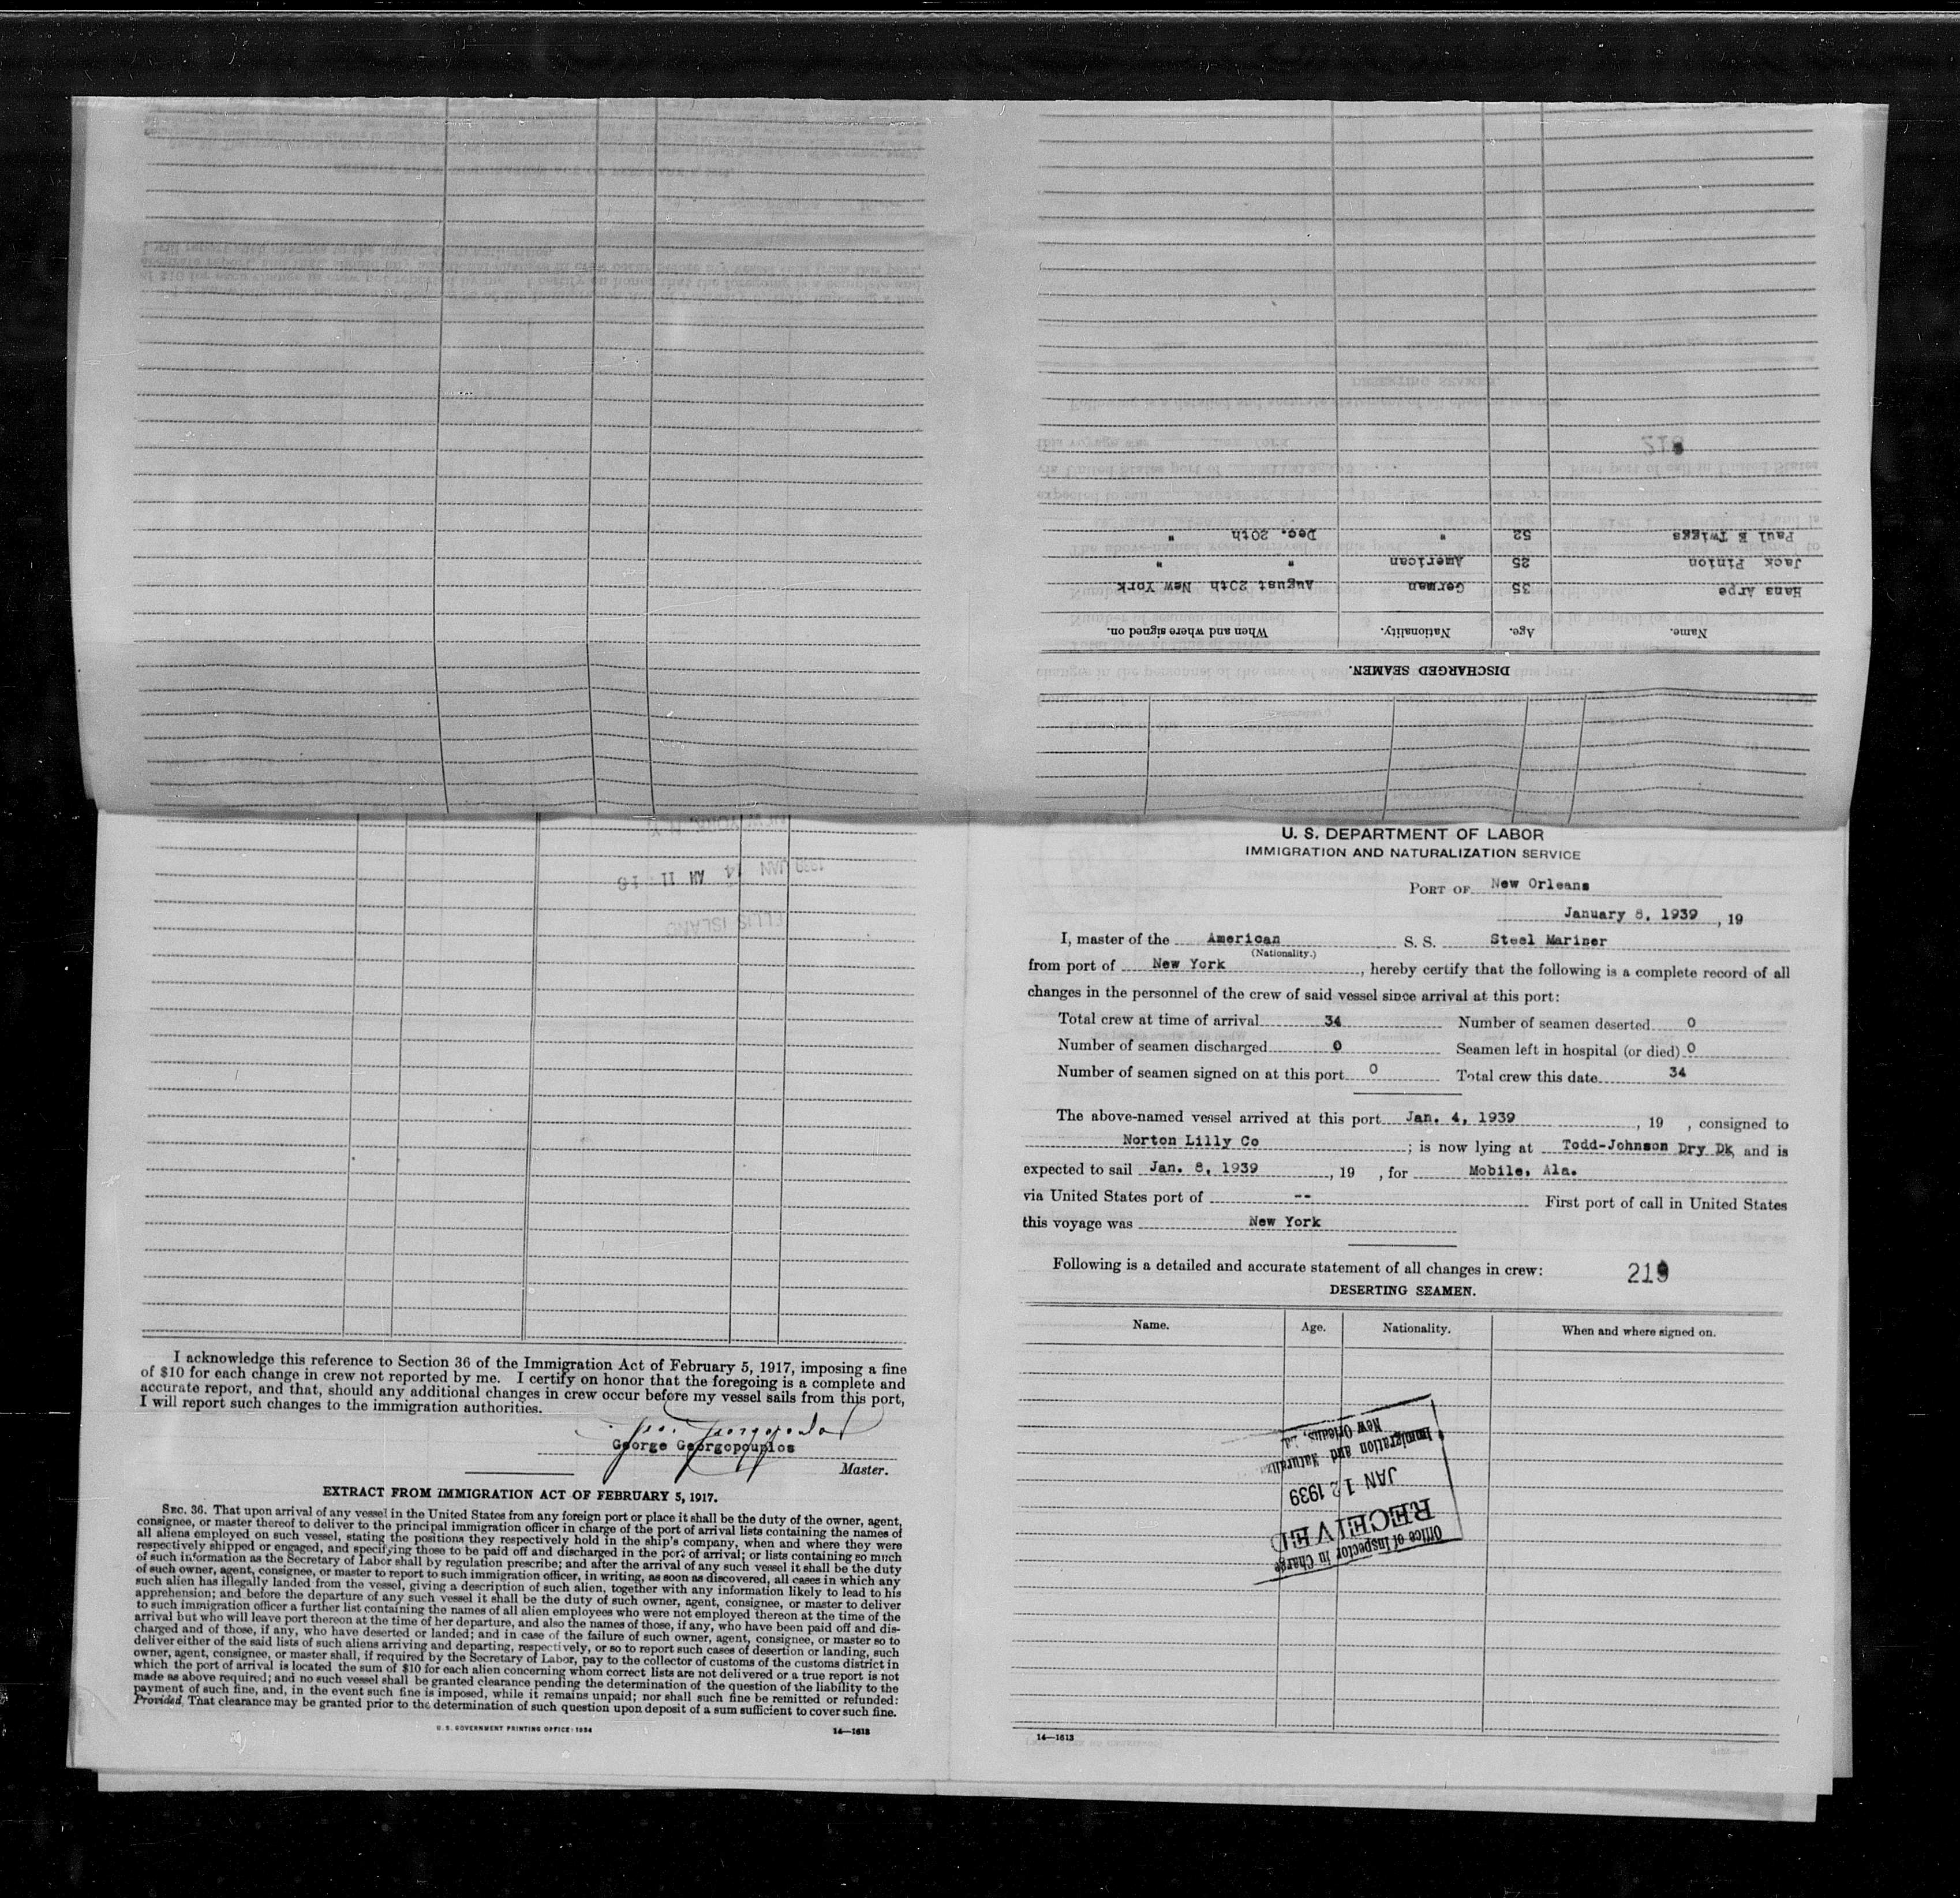 DISCHARGED SEAMEN.
Name. Age. Nationality. When and where signed on.
Hans Arpe 35 German August 29th New York
Jack Pinion 25 American " " "
Paul E Twiggs 52 " Dec. 20th "
1939 JAN 14 AM 11
ELLIS ISLAND
I acknowledge this reference to Section 36 of the Immigration Act of February 5, 1917, imposing a fine
of $10 for each change in crew not reported by me. I certify on honor that the foregoing is a complete and
accurate report, and that, should any additional changes in crew occur before my vessel sails from this port,
I will report such changes to the immigration authorities.
George Georgopouplos
Master.
EXTRACT FROM IMMIGRATION ACT OF FEBRUARY 5, 1917.
SEC. 36. That upon arrival of any vessel in the United States from any foreign port or place it shall be the duty of the owner, agent,
consignee, or master thereof to deliver to the principal immigration officer in charge of the port of arrival lists containing the names of
all aliens employed on such vessel, stating the positions they respectively hold in the ship's company, when and where they were
respectively shipped or engaged, and specifying those to be paid off and discharged in the port of arrival; or lists containing so much
of such information as the Secretary of Labor shall by regulation prescribe; and after the arrival of any such vessel it shall be the duty
of such owner, agent, consignee, or master to report to such immigration officer, in writing, as soon as discovered, all cases in which any
such alien has illegally landed from the vessel, giving a description of such alien, together with any information likely to lead to his
apprehension; and before the departure of any such vessel it shall be the duty of such owner, agent, consignee, or master to deliver
to such immigration officer a further list containing the names of all alien employees who were not employed thereon at the time of the
arrival but who will leave port thereon at the time of her departure, and also the names of those, if any, who have been paid off and dis-
charged and of those, if any, who have deserted or landed; and in case of the failure of such owner, agent, consignee, or master so to
deliver either of the said lists of such aliens arriving and departing, respectively, or so to report such cases of desertion or landing, such
owner, agent, consignee, or master shall, if required by the Secretary of Labor, pay to the collector of customs of the customs district in
which the port of arrival is located the sum of $10 for each alien concerning whom correct lists are not delivered or a true report is not
made as above required; and no such vessel shall be granted clearance pending the determination of the question of the liability to the
payment of such fine, and, in the event such fine is imposed, while it remains unpaid; nor shall such fine be remitted or refunded:
Provided, That clearance may be granted prior to the determination of such question upon deposit of a sum sufficient to cover such fine.
U. S. GOVERNMENT PRINTING OFFICE: 1934 14—1613
U. S. DEPARTMENT OF LABOR
IMMIGRATION AND NATURALIZATION SERVICE
PORT OF New Orleans
January 8, 1939, 19
I, master of the American S. S. Steel Mariner
(Nationality.)
from port of New York, hereby certify that the following is a complete record of all
changes in the personnel of the crew of said vessel since arrival at this port:
Total crew at time of arrival 34 Number of seamen deserted 0
Number of seamen discharged 0 Seamen left in hospital (or died) 0
Number of seamen signed on at this port 0 Total crew this date 34
The above-named vessel arrived at this port Jan. 4, 1939, 19 , consigned to
Norton Lilly Co; is now lying at Todd-Johnson Dry Dk, and is
expected to sail Jan. 8, 1939, 19 , for Mobile, Ala.
via United States port of -- First port of call in United States
this voyage was New York
Following is a detailed and accurate statement of all changes in crew: 219
DESERTING SEAMEN.
Name. Age. Nationality. When and where signed on.
Office of Inspector in Charge
RECEIVED
JAN 12 1939
Immigration and Naturaliz
New Orleans, La.
14—1613